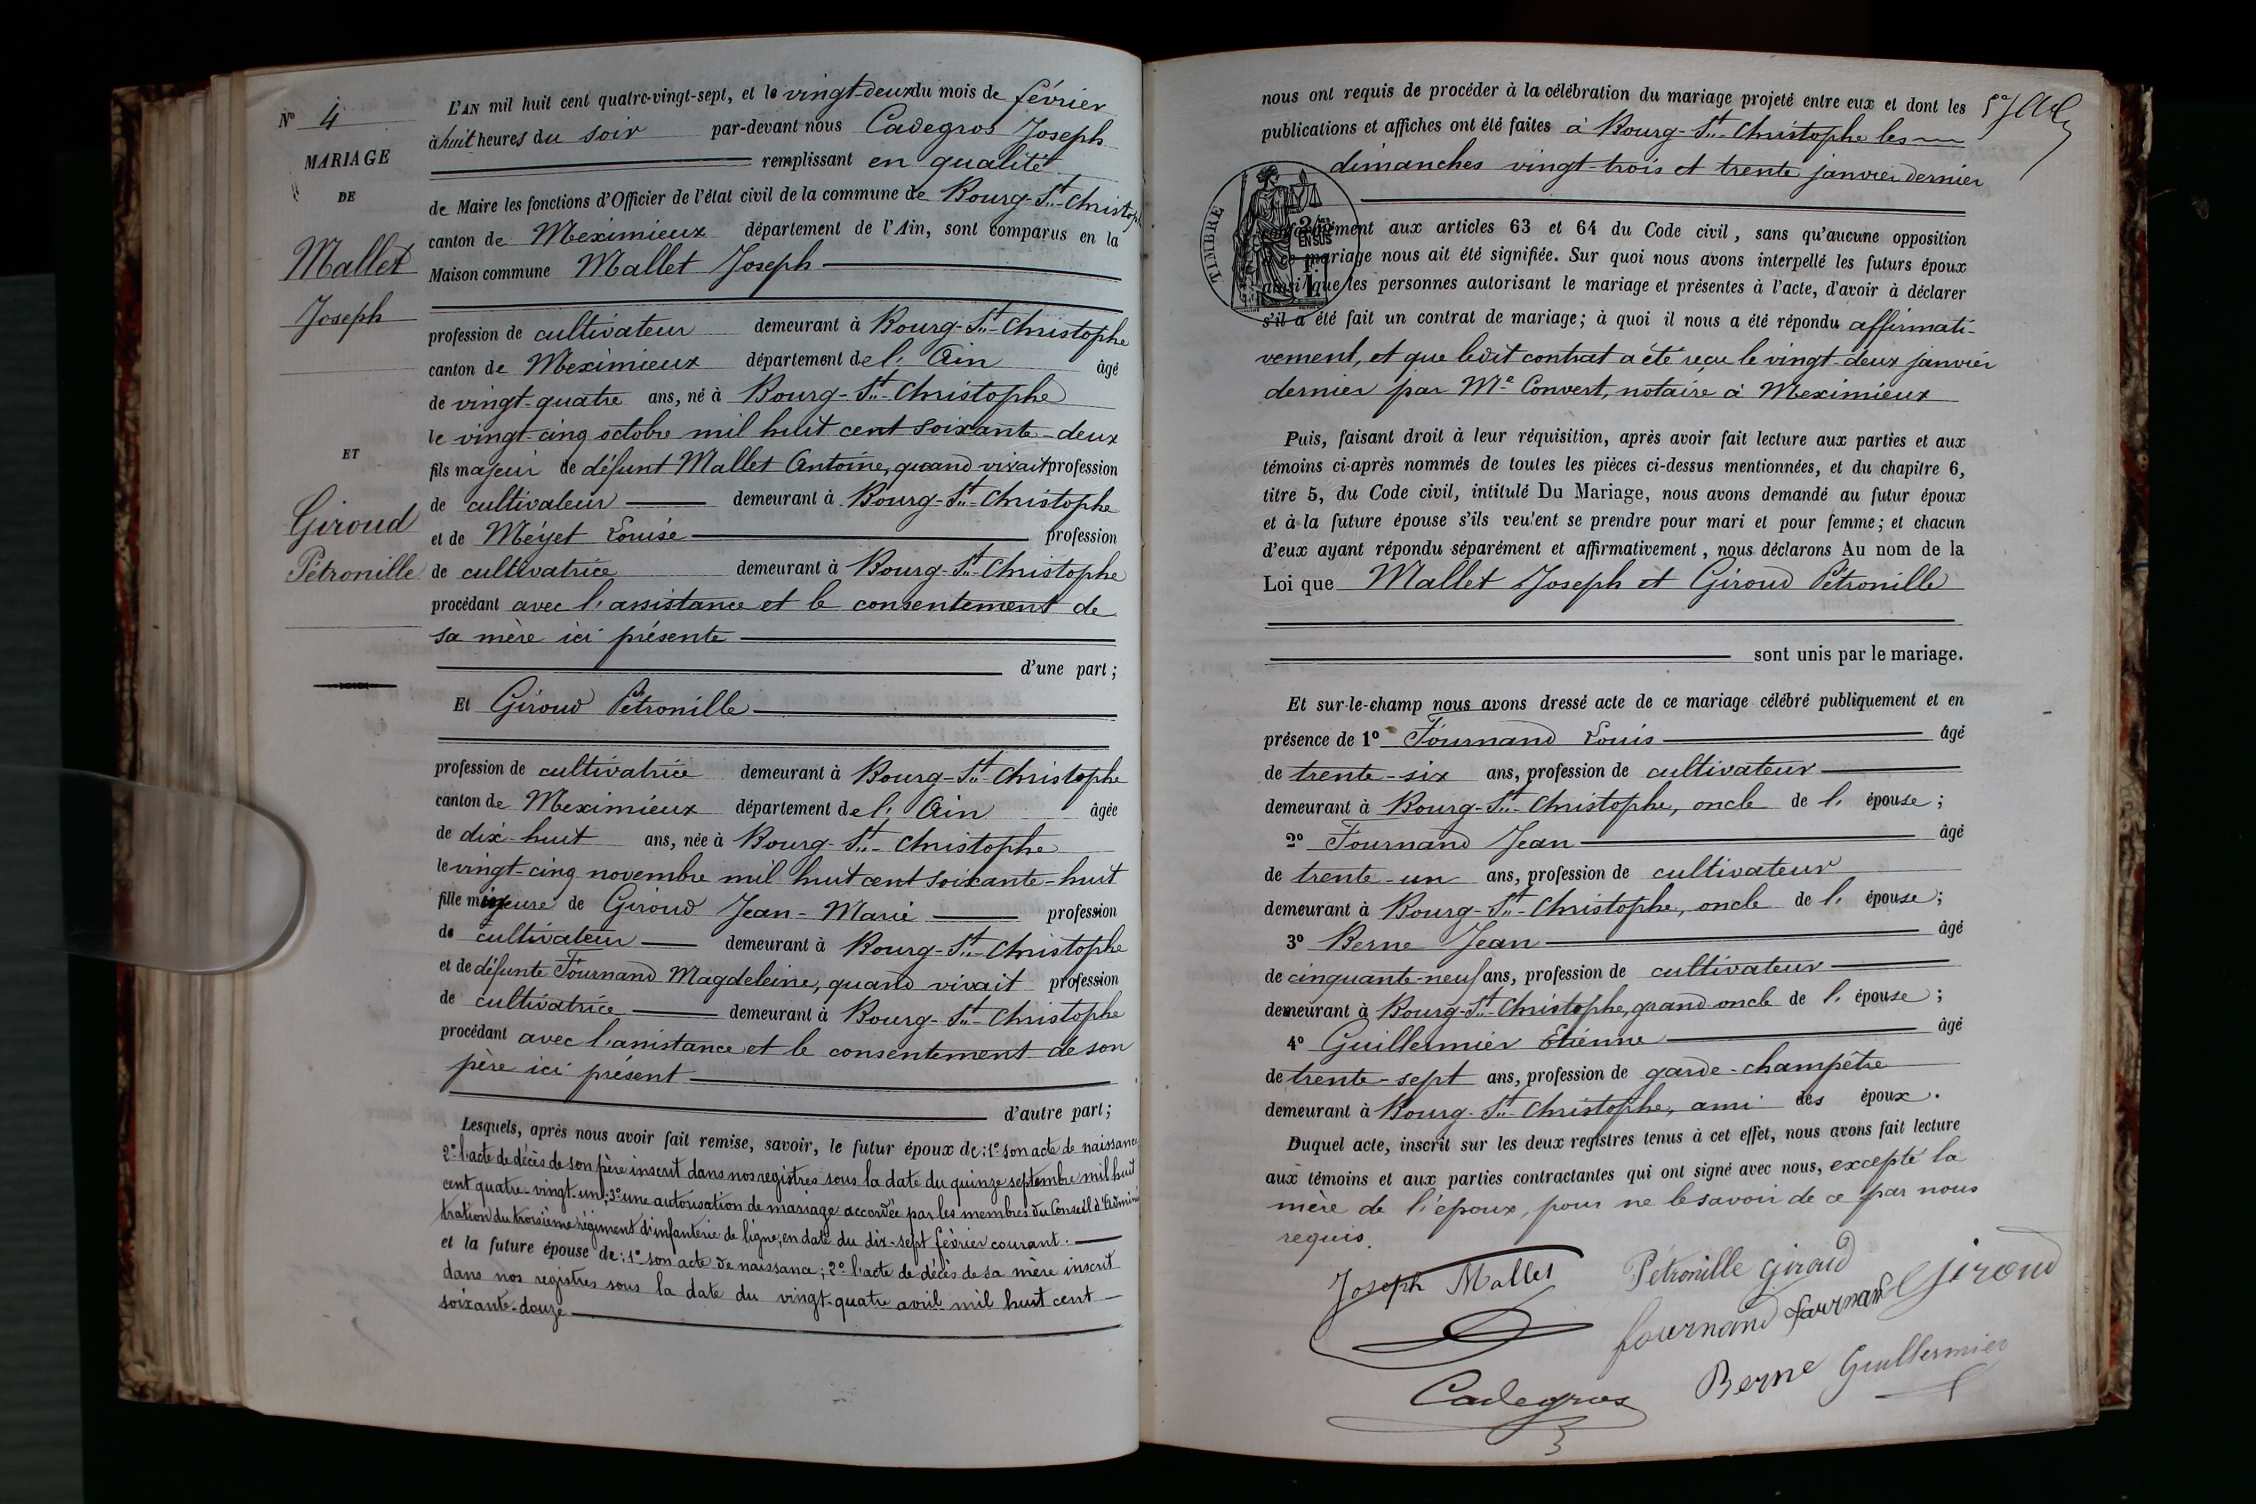 N° 4
MARIAGE
DE
Mallet
Joseph
ET
Giroud
Pétronille
L'AN mil huit cent quatre-vingt-sept, et le vingt-deux du mois de février
à huit heures du soir par-devant nous Cadegros Joseph
remplissant en qualité
de Maire les fonctions d'Officier de l'état civil de la commune de Bourg-St-Christophe
canton de Meximieux département de l'Ain, sont comparus en la
Maison commune Mallet Joseph
profession de cultivateur demeurant à Bourg-St-Christophe
canton de Meximieux département de l'Ain âgé
de vingt-quatre ans, né à Bourg-St-Christophe
le vingt-cinq octobre mil huit cent soixante-deux
fils majeur de défunt Mallet Antoine, quand vivait profession
de cultivateur demeurant à Bourg-St-Christophe
et de Méyet Louise profession
de cultivatrice demeurant à Bourg-St-Christophe
procédant avec l'assistance et le consentement de
sa mère ici présente
d'une part;
Et Giroud Pétronille
profession de cultivatrice demeurant à Bourg-St-Christophe
canton de Meximieux département de l'Ain âgée
de dix-huit ans, née à Bourg-St-Christophe
le vingt-cinq novembre mil huit cent soixante-huit
fille mineure de Giroud Jean-Marie profession
de cultivateur demeurant à Bourg-St-Christophe
et de défunte Fournand Magdeleine, quand vivait profession
de cultivatrice demeurant à Bourg-St-Christophe
procédant avec l'assistance et le consentement de son
père ici présent
d'autre part;
Lesquels, après nous avoir fait remise, savoir, le futur époux de: 1° son acte de naissance
2° l'acte de décès de son père inscrit dans nos registres sous la date du quinze septembre mil huit
cent quatre-vingt-un; 3° une autorisation de mariage accordée par les membres du Conseil d'Adminis
tration du troisième régiment d'infanterie de ligne, en date du dix-sept février courant.
et la future épouse de: 1° son acte de naissance; 2° l'acte de décès de sa mère inscrit
dans nos registres sous la date du vingt-quatre avril mil huit cent
soixante-douze
nous ont requis de procéder à la célébration du mariage projeté entre eux et dont les
publications et affiches ont été faites à Bourg-St-Christophe les
dimanches vingt-trois et trente janvier dernier
TIMBRE
2/10 EN SUS
conformément aux articles 63 et 64 du Code civil, sans qu'aucune opposition
ce mariage nous ait été signifiée. Sur quoi nous avons interpellé les futurs époux
ainsi que les personnes autorisant le mariage et présentes à l'acte, d'avoir à déclarer
s'il a été fait un contrat de mariage; à quoi il nous a été répondu affirmati-
vement, et que ledit contrat a été reçu le vingt-deux janvier
dernier par Me Convert, notaire à Meximieux
Puis, faisant droit à leur réquisition, après avoir fait lecture aux parties et aux
témoins ci-après nommés de toutes les pièces ci-dessus mentionnées, et du chapitre 6,
titre 5, du Code civil, intitulé Du Mariage, nous avons demandé au futur époux
et à la future épouse s'ils veulent se prendre pour mari et pour femme; et chacun
d'eux ayant répondu séparément et affirmativement, nous déclarons Au nom de la
Loi que Mallet Joseph et Giroud Pétronille
sont unis par le mariage.
Et sur-le-champ nous avons dressé acte de ce mariage célébré publiquement et en
présence de 1° Fournand Louis âgé
de trente-six ans, profession de cultivateur
demeurant à Bourg-St-Christophe, oncle de l'épouse;
2° Fournand Jean âgé
de trente-un ans, profession de cultivateur
demeurant à Bourg-St-Christophe, oncle de l'épouse;
3° Berne Jean âgé
de cinquante-neuf ans, profession de cultivateur
demeurant à Bourg-St-Christophe, grand-oncle de l'épouse;
4° Guillermier Etienne âgé
de trente-sept ans, profession de garde-champêtre
demeurant à Bourg-St-Christophe, ami des époux.
Duquel acte, inscrit sur les deux registres tenus à cet effet, nous avons fait lecture
aux témoins et aux parties contractantes qui ont signé avec nous, excepté la
mère de l'époux, pour ne le savoir de ce par nous
requis.
Joseph Mallet Pétronille Giroud Giroud
fournand fournand
Cadegros Berne Guillermier